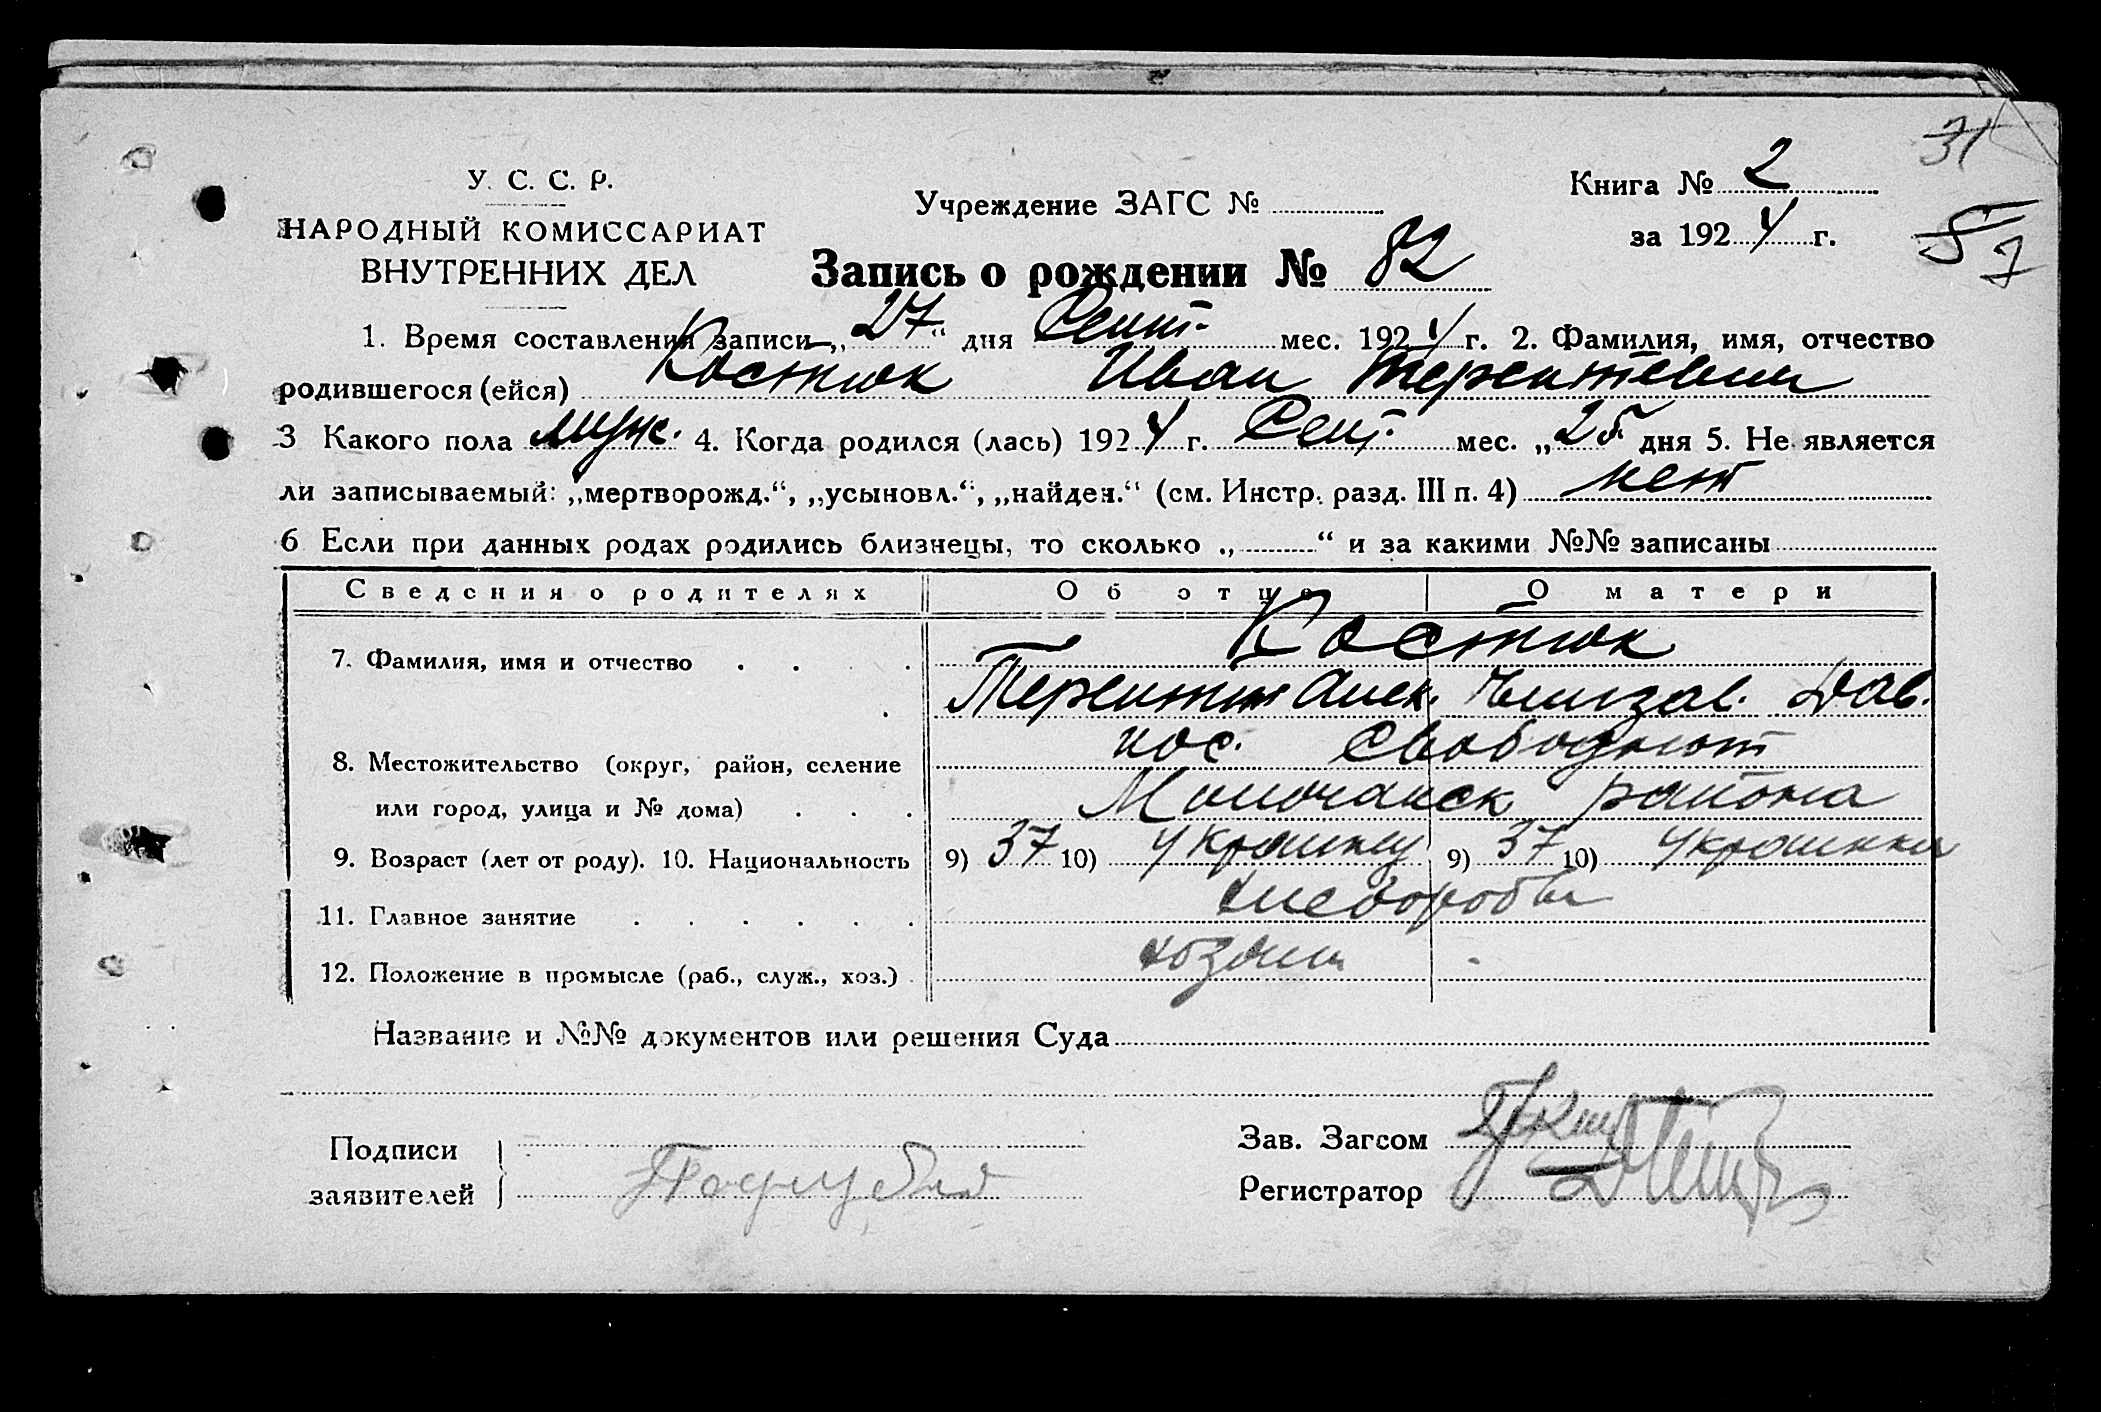 31
У. С. С. Р.
НАРОДНЫЙ КОМИССАРИАТ
ВНУТРЕННИХ ДЕЛ
Учреждение ЗАГС №
Книга № 2
за 1924 г.
57
Запись о рождении № 82
1. Время составления записи „27“ дня Сент. мес. 1924 г. 2. Фамилия, имя, отчество
родившегося (ейся) Костюк Иван Терентевич
3 Какого пола муж. 4. Когда родился (лась) 1924 г. Сент. мес. „25 дня 5. Не является
ли записываемый: „мертворожд.“, „усыновл.“, „найден.“ (см. Инстр. разд. III п. 4) нет
6 Если при данных родах родились близнецы, то сколько „ “ и за какими №№ записаны
Сведения о родителях Об отце О матери
7. Фамилия, имя и отчество Костюк
Терентий Алек. Елизав. Дав.
8. Местожительство (округ, район, селение пос.
или город, улица и № дома) Молочанск района
9. Возраст (лет от роду). 10. Национальность 9) 37 10) Украинец 9) 37 10) Украинка
11. Главное занятие хлеборобы
12. Положение в промысле (раб., служ., хоз.) хозяин
Название и №№ документов или решения Суда
Подписи
заявителей
Зав. Загсом
Регистратор